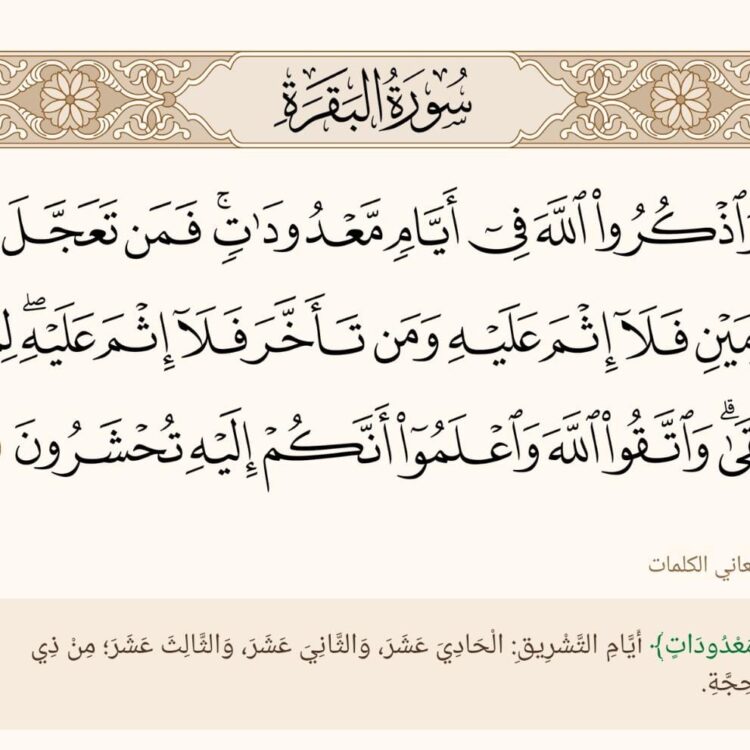 سُورَةُ البَقَرَةِ
وَٱذۡكُرُواْ ٱللَّهَ فِيٓ أَيَّامٖ مَّعۡدُودَٰتٖۚ فَمَن تَعَجَّلَ
فَلَآ إِثۡمَ عَلَيۡهِ وَمَن تَأَخَّرَ فَلَآ إِثۡمَ عَلَيۡهِۖ
وَٱتَّقُواْ ٱللَّهَ وَٱعۡلَمُوٓاْ أَنَّكُمۡ إِلَيۡهِ تُحۡشَرُونَ
الكلمات
مَعْدُودَاتٍ﴾ أَيَّامِ التَّشْرِيقِ: الْحَادِيَ عَشَرَ، وَالثَّانِيَ عَشَرَ، وَالثَّالِثَ عَشَرَ؛ مِنْ ذِي